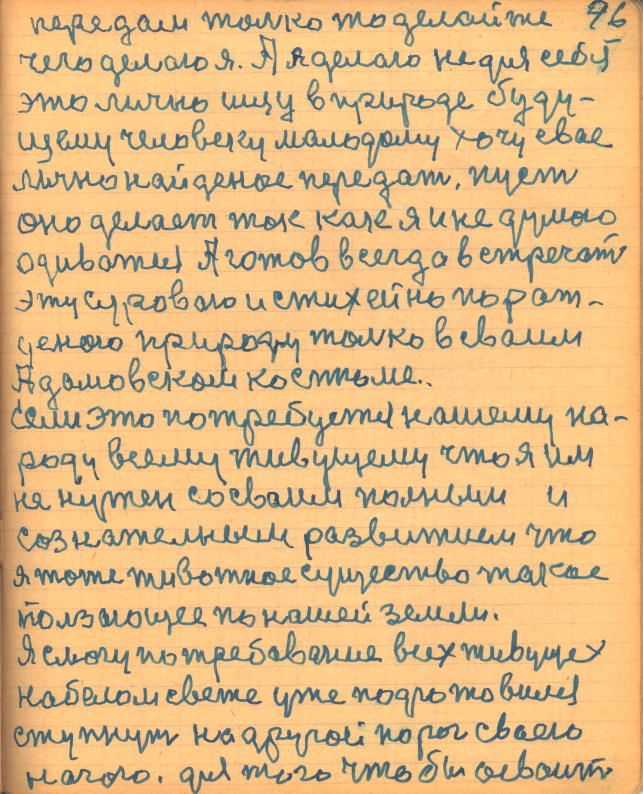 96
передам толко то делайте
чего делаю я. А я делаю не для себя
это лично ищу в природе буду-
щему человеку малодому хочу свае
лично найденое передат, пуст
оно делает так как я и не думаю
одиватся А готов всегда встречат
эту суровою и стихейно порат-
деною природу толко в сваим
Адамовском костюме..
Если это потребуется нашему на-
роду всему живущему что я им
не нужен со сваим полным и
сознателным развитием что
я тоже животное существо такае
ползающее по нашей земли.
Я смогу по требавание всех живущех
на белом свете уже подготовился
ступнут на другой порог сваего
начого. для того что бы освоит